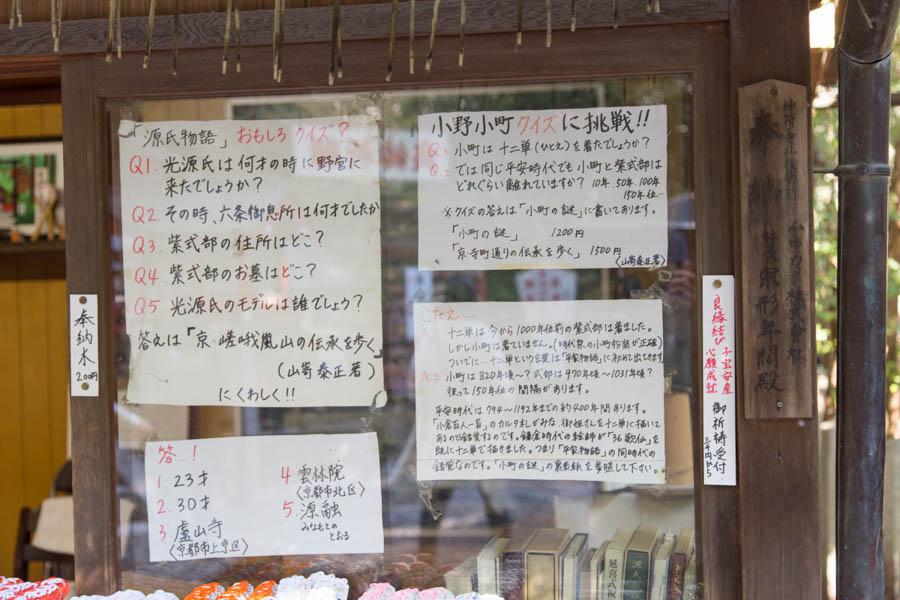 「源氏物語」おもしろクイズ?
Q1. 光源氏は何才の時に野宮に
来たでしょうか?
Q2. その時、六条御息所は何才でしたか
Q3. 紫式部の住所はどこ?
Q4 紫式部のお墓はどこ?
Q5 光源氏のモデルは誰でしょう?
答えは「京・嵯峨嵐山の伝承を歩く」
(山嵜泰正著)
にくわしく!!
小野小町クイズに挑戦!!
Q.1 小町は十二単(ひとえ)を着たでしょうか?
Q.2 では同じ平安時代でも小町と紫式部は
どれぐらい離れていますか? 10年.50年.100年
150年位…
※クイズの答えは「小町の謎」に書いてあります。
「小町の謎」 1200円
「京・寺町通りの伝承を歩く」 1500円
(山嵜泰正著)
こたえ…
A.1 十二単は今から1000年位前の紫式部は着ました。
しかし小町は着ていません。(時代祭の小町衣装が正確)
ついに…十二単という言葉は「平家物語」に初めて出てきます
A.2 小町は820年頃〜? 式部は970年頃〜1031年頃?
従って150年位の間隔があります。
平安時代は794〜1192年までの約400年間あります。
「小倉百人一首」のカルタ札がみな、御姫さんを十二単に描いて
あるので錯覚するのです。鎌倉時代の絵師が「36歌仙」を
既に十二単で描きました。つまり「平家物語」の同時代の
錯覚なのです。「小町の謎」の裏表紙を参照して下さい。
答…!
1. 23才
2. 30才
3 盧山寺
〈京都市上京区〉
4. 雲林院
〈京都市北区〉
5. 源融
みなもとの
とおる
奉納木 200円
良縁結び 子宝安産
心願成就
御祈祷受付
三千円から